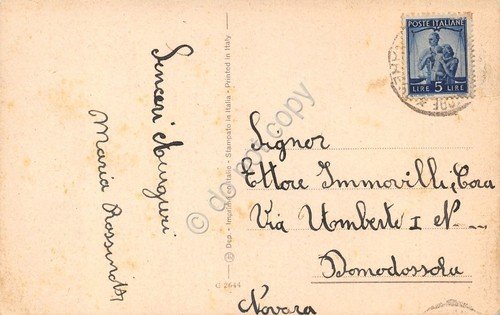 POSTE ITALIANE
LIRE 5 LIRE
Sinceri Auguri
Maria
Dep - Imprimé en Italie - Stampato in Italia - Printed in Italy
G 2644
Signor
Ettore Immovilli, Cora
Via Umberto I N.
Domodossola
Novara
do not copy